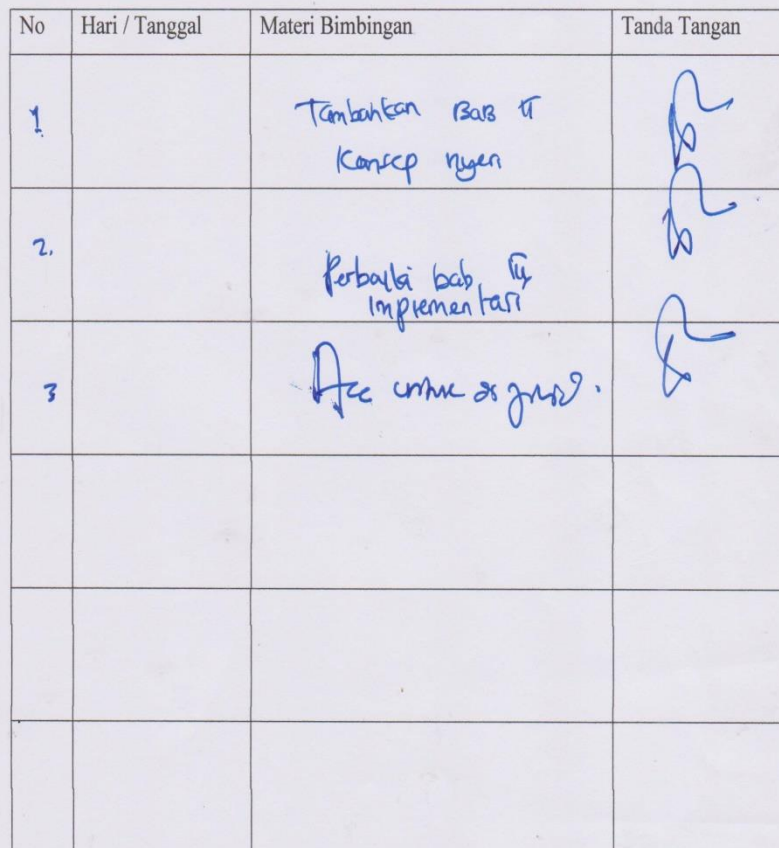 No Hari / Tanggal Materi Bimbingan Tanda Tangan
1 Tambahkan BAB II
Konsep nyeri
2. Perbaiki bab IV
implementasi
3 Acc untuk